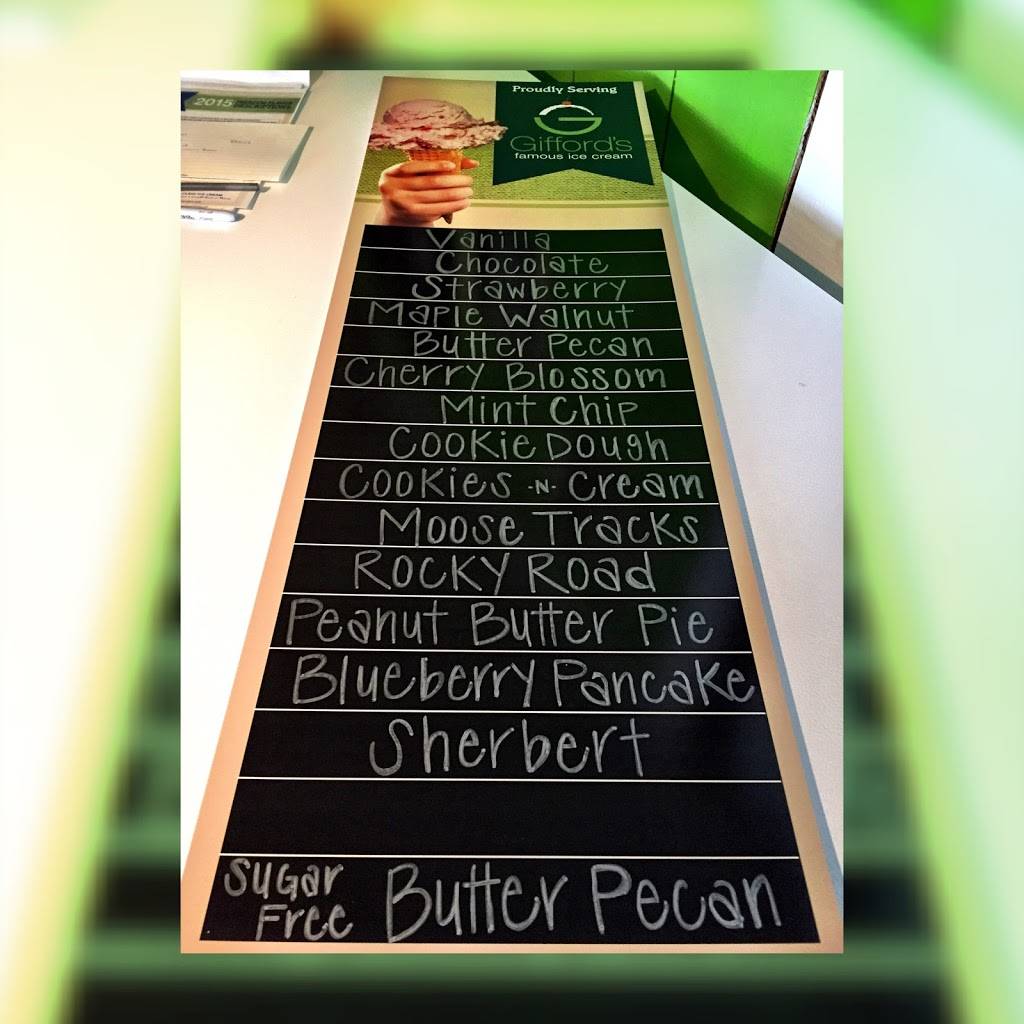 2015
Proudly Serving
G
Gifford's
famous ice cream
Vanilla
Chocolate
Strawberry
Maple Walnut
Butter Pecan
Cherry Blossom
Mint Chip
Cookie Dough
Cookies -N- Cream
Moose Tracks
Rocky Road
Peanut Butter Pie
Blueberry Pancake
Sherbert
Sugar
Free Butter Pecan